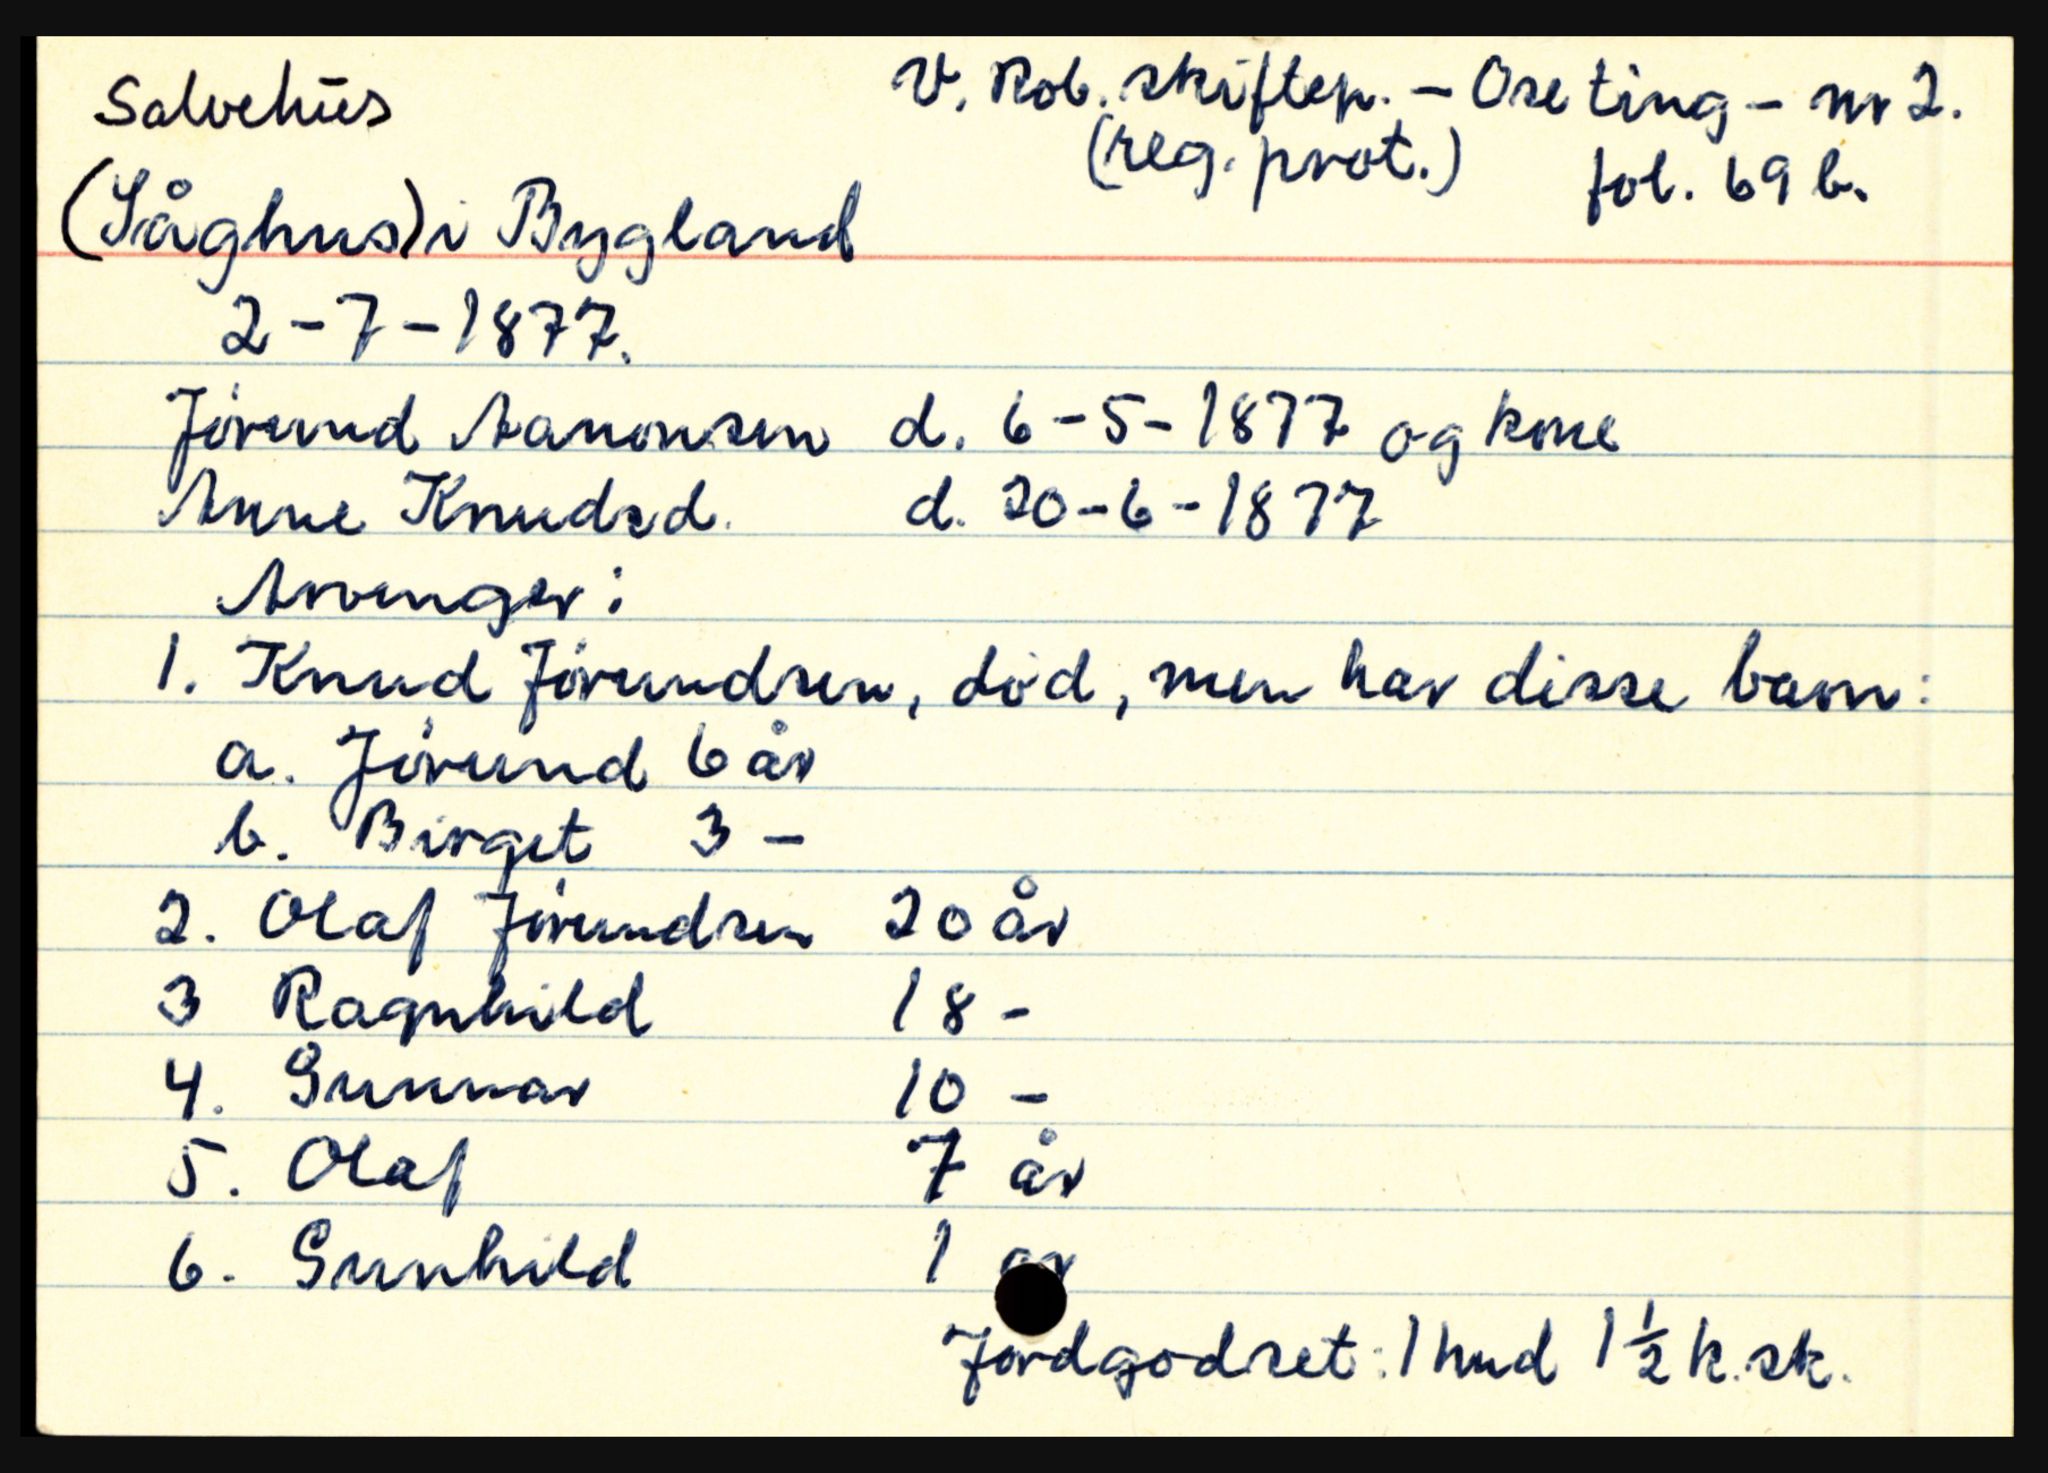 Salvehus
V. Rob. skiftep. - Ose ting - nr 2.
(reg. prot.) fol. 69 b.
(Såghus) i Bygland
2-7-1877.
Jørund Aanonsen d. 6-5-1877 og kone
Anne Knudsd. d. 20-6-1877
Arvinger:
1. Knud Jørundsen, død, men har disse barn:
a. Jørund 6 år
b. Birget 3 -
2. Olaf Jørundsen 20 år
3 Ragnhild 18 -
4. Gunnar 10 -
5. Olaf 7 år
6. Gunhild 1 år
Jordgodset: 1 hud 1 1/2 k. sk.